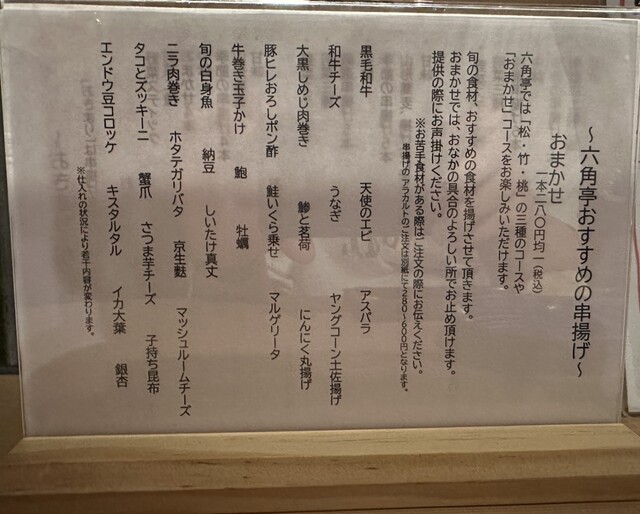 ～六角亭おすすめの串揚げ～
おまかせ
一本二八〇円均一(税込)
六角亭では「松・竹・桃」の三種のコースや
「おまかせ」コースをお楽しみいただけます。
旬の食材、おすすめの食材を揚げさせて頂きます。
おまかせでは、おなかの具合のよろしい所でお止め頂けます。
提供の際にお声掛けください。
※お苦手食材がある際はご注文の際にお伝えください。
串揚げのアラカルトのご注文は別紙にて280～600円となります。
黒毛和牛 天使のエビ アスパラ
和牛チーズ うなぎ ヤングコーン土佐揚げ
大黒しめじ肉巻き 鯵と茗荷 にんにく丸揚げ
豚ヒレおろしポン酢 鮭いくら乗せ マルゲリータ
牛巻き玉子かけ 鮑 牡蠣
旬の白身魚 納豆 しいたけ真丈
ニラ肉巻き ホタテガリバタ 京生麩 マッシュルームチーズ
タコとズッキーニ 蟹爪 さつま芋チーズ 子持ち昆布
エンドウ豆コロッケ キスタルタル イカ大葉 銀杏
※仕入れの状況により若干内容が変わります。